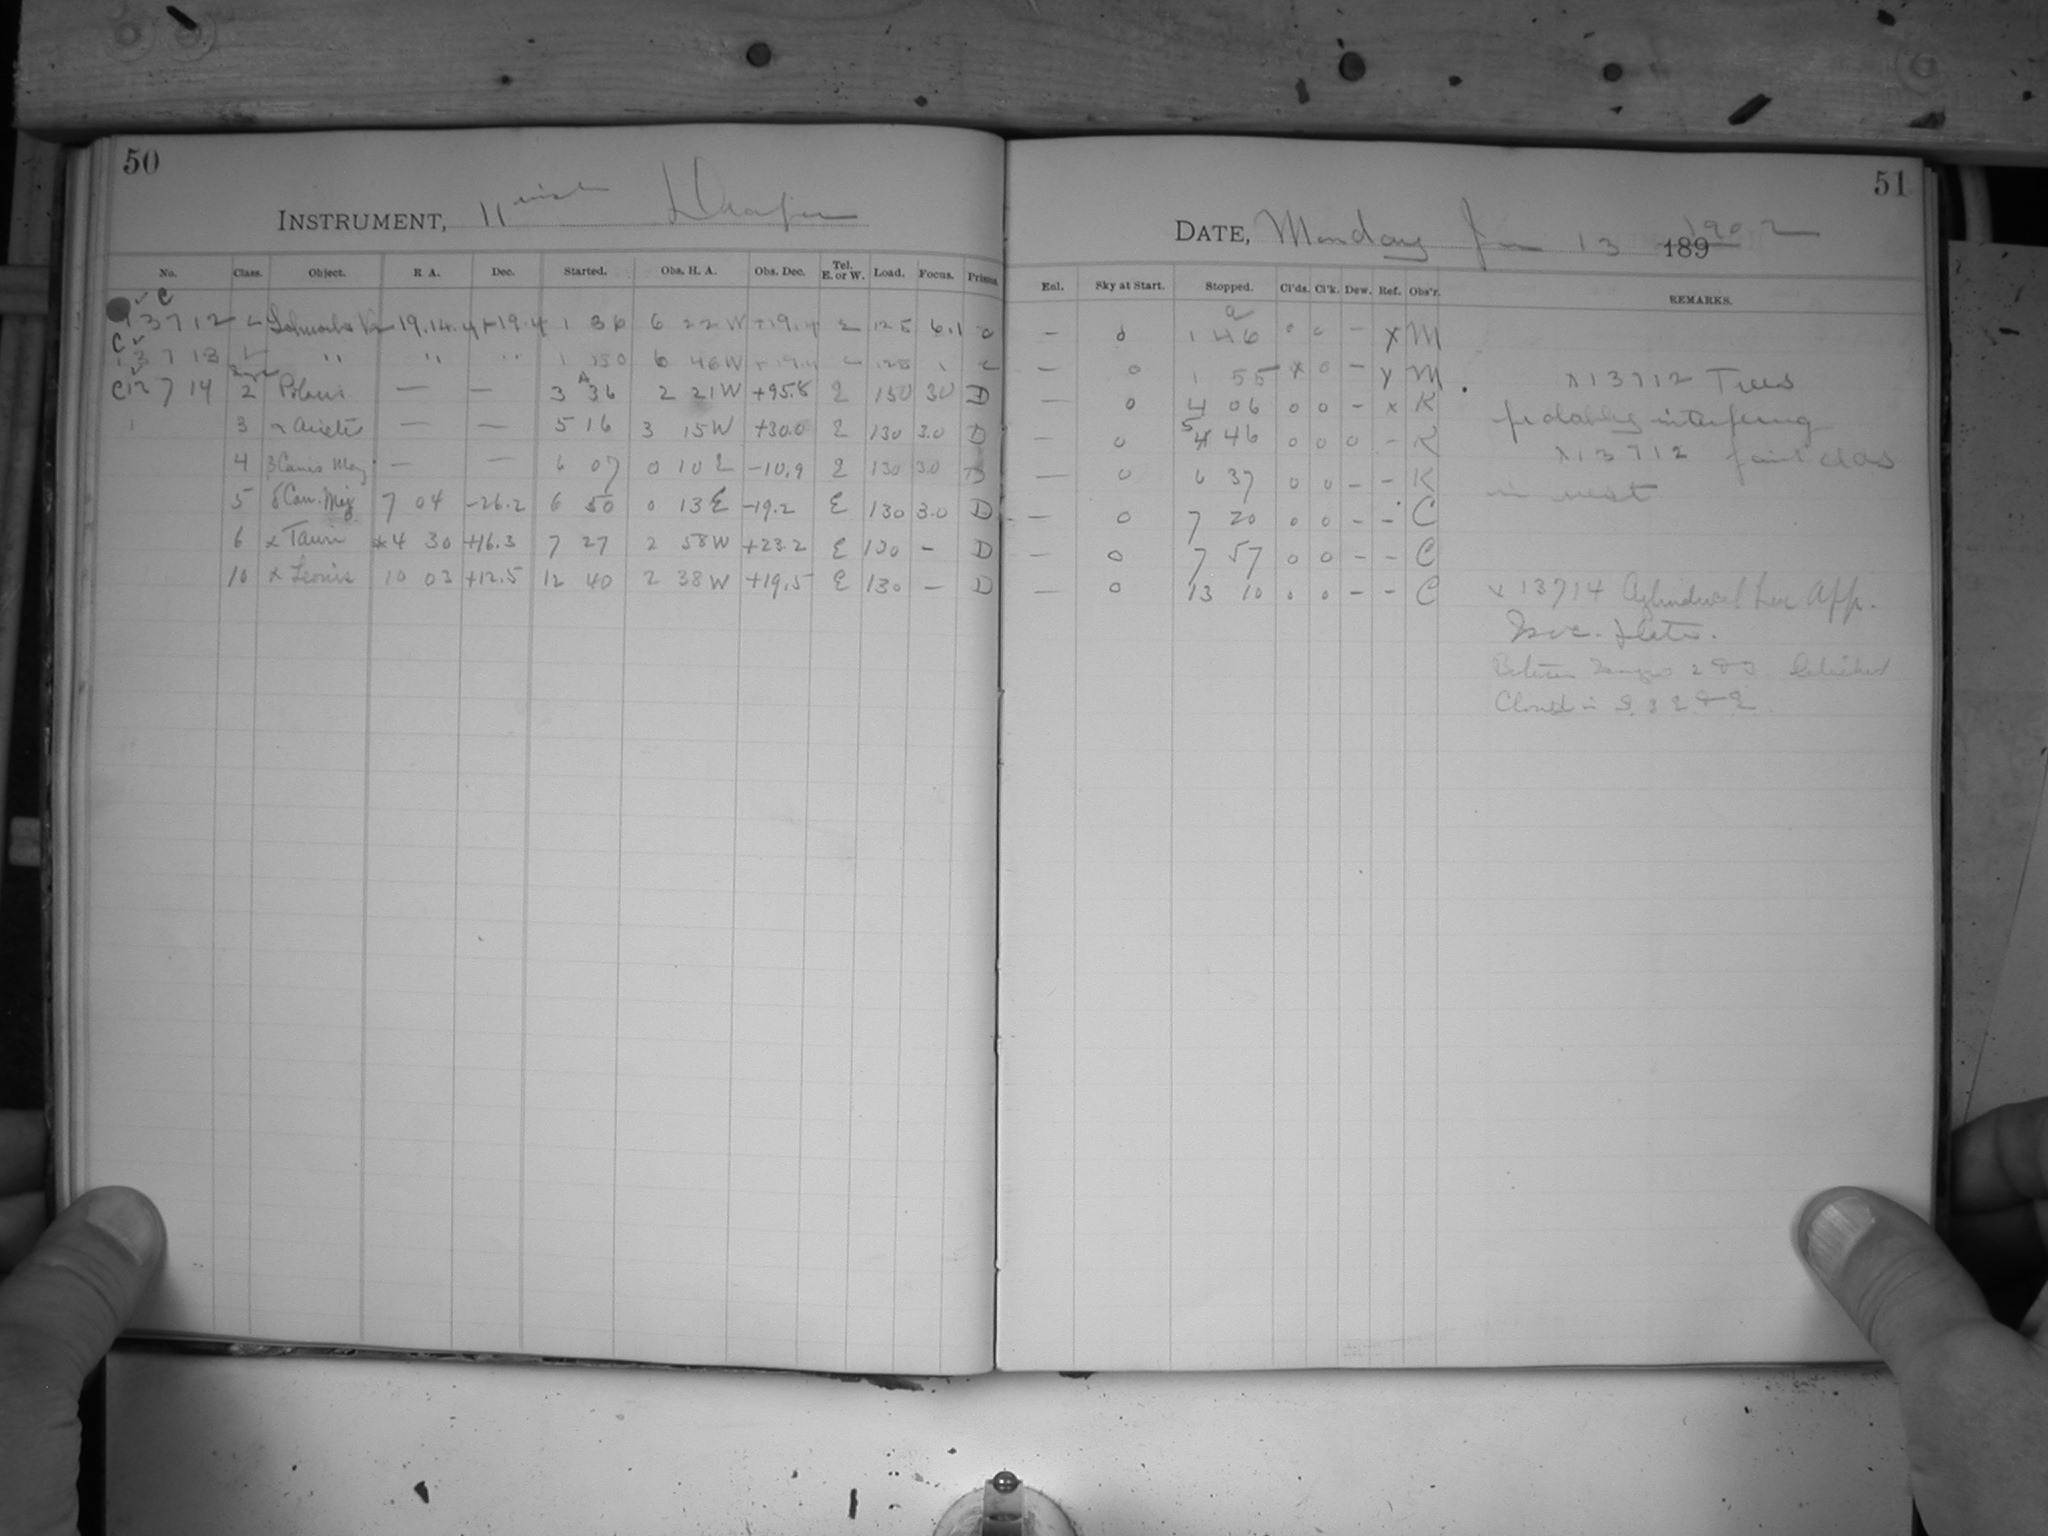 50
INSTRUMENT, 11 inch Draper
No. Class. Object. R A. Dec. Started. Obs. H. A. Obs. Dec. Tel. E. or W. Load. Focus. Prisms.
C
13712 19.14.4 +19.4 1 36 6 22 W +19.4 125 6.1
C 13713 " " " 1 50 6 46 W 125
C 13714 2 3 36 2 21 W +95.8 E 150 30 D
3 α Arietis — — 5 16 3 15 W +30.0 E 130 3.0 D
4 Canis Maj. — — 6 07 0 10 E -10.9 E 130 3.0 D
5 δ Can. Maj 7 04 -26.2 6 50 0 13 E -19.2 E 130 3.0 D
6 α Tauri 4 30 +16.3 7 27 2 58 W +23.2 E 130 — D
10 α Leonis 10 03 +12.5 12 40 2 38 W +19.5 E 130 — D
51
DATE, Monday Jan 13 189 1902
Enl. Sky at Start. Stopped. Cl'ds. Cl'k. Dew. Ref. Obs'r. REMARKS.
— 0 1 46 0 0 — x M
— 0 1 55 x 0 — x M
— 0 4 06 0 0 — x K
— 0 5 46 0 0 0 — K
— 0 6 37 0 0 — — K
— 0 7 20 0 0 — — C
— 0 7 57 0 0 — — C
— 0 13 10 0 0 — — C
x 13712 Trees
probably interfering
x 13712 faint
in west
x 13714 App.
Between 2 & 3